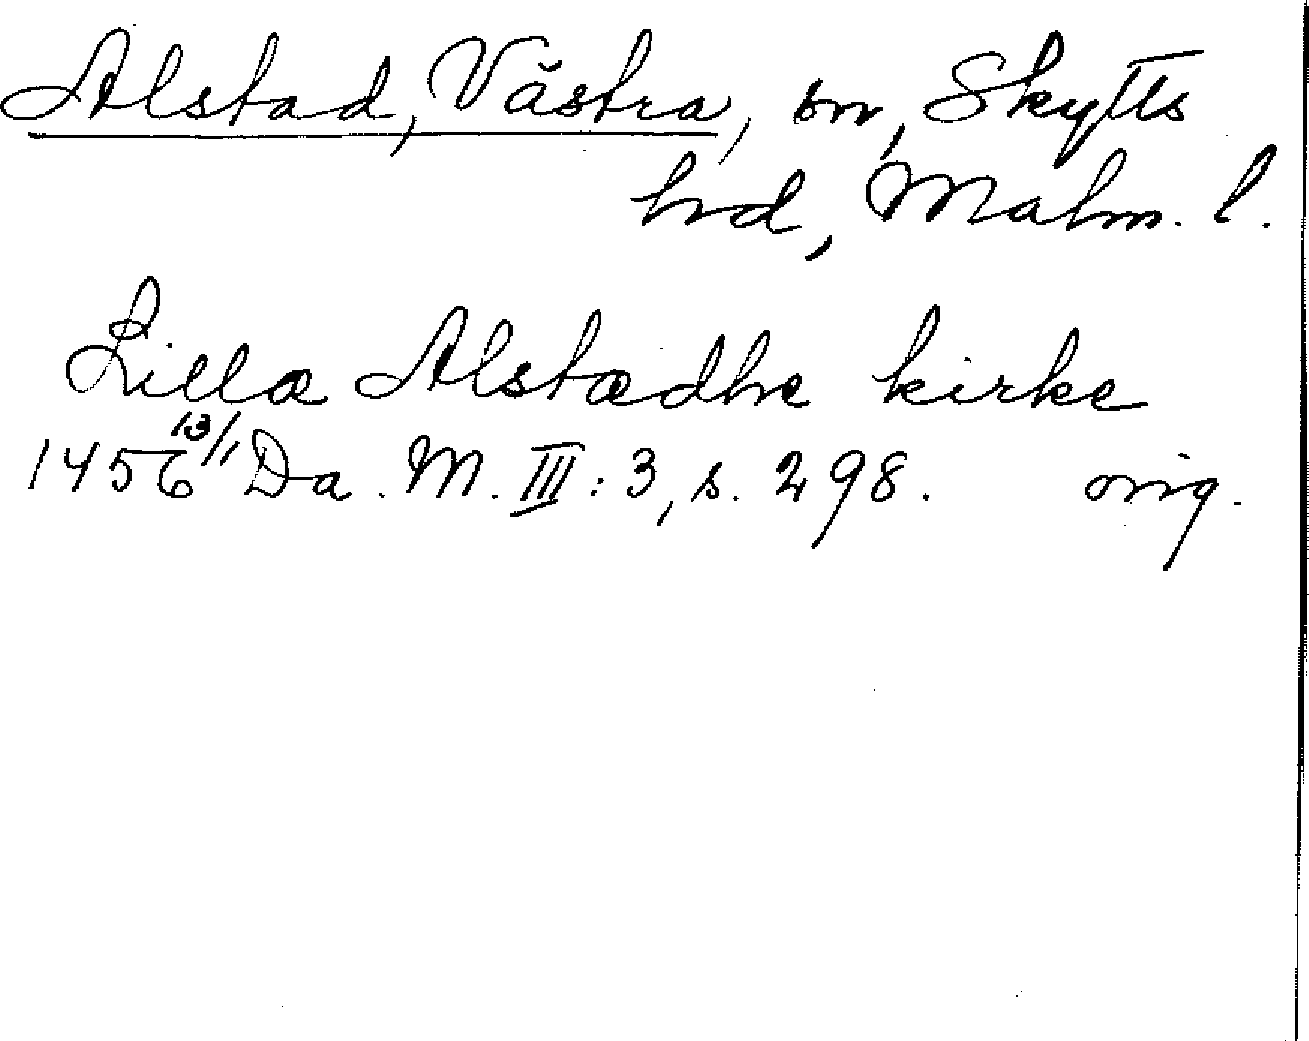 Alstad, Västra, sn, Skytts
hrd, Malm. l.
Lillæ Alstædhe kirke
1456 13/1 Da. M. III: 3, s. 298. orig.